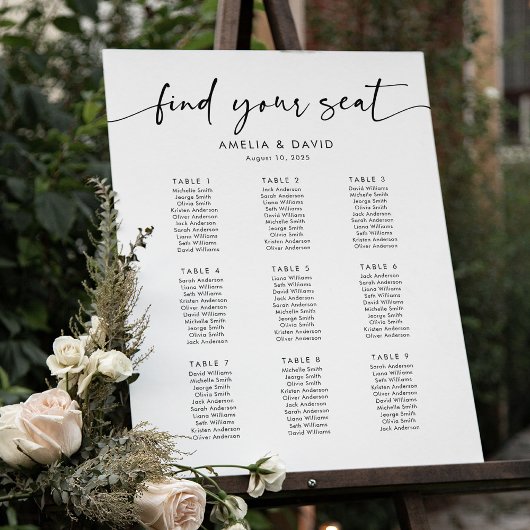 find your seat
AMELIA & DAVID
August 10, 2025
TABLE 1
Michelle Smith
Jeorge Smith
Olivia Smith
Kristen Anderson
Oliver Anderson
Jack Anderson
Sarah Anderson
Liana Williams
Seth Williams
David Williams
TABLE 2
Jack Anderson
Sarah Anderson
Liana Williams
Seth Williams
David Williams
Michelle Smith
Jeorge Smith
Olivia Smith
Kristen Anderson
Oliver Anderson
TABLE 3
David Williams
Michelle Smith
Jeorge Smith
Olivia Smith
Jack Anderson
Sarah Anderson
Liana Williams
Seth Williams
Kristen Anderson
Oliver Anderson
TABLE 4
Sarah Anderson
Liana Williams
Seth Williams
Kristen Anderson
Oliver Anderson
David Williams
Michelle Smith
Jeorge Smith
Olivia Smith
Jack Anderson
TABLE 5
Liana Williams
Seth Williams
David Williams
Jack Anderson
Sarah Anderson
Michelle Smith
Jeorge Smith
Olivia Smith
Kristen Anderson
Oliver Anderson
TABLE 6
Sarah Anderson
Liana Williams
Seth Williams
Kristen Anderson
Oliver Anderson
David Williams
Michelle Smith
Jeorge Smith
Olivia Smith
Jack Anderson
TABLE 7
David Williams
Michelle Smith
Jeorge Smith
Olivia Smith
Jack Anderson
Sarah Anderson
Liana Williams
Seth Williams
Kristen Anderson
Oliver Anderson
TABLE 8
Michelle Smith
Jeorge Smith
Olivia Smith
Kristen Anderson
Oliver Anderson
Jack Anderson
Sarah Anderson
Liana Williams
Seth Williams
David Williams
TABLE 9
Sarah Anderson
Liana Williams
Seth Williams
Kristen Anderson
Oliver Anderson
David Williams
Michelle Smith
Jeorge Smith
Olivia Smith
Jack Anderson